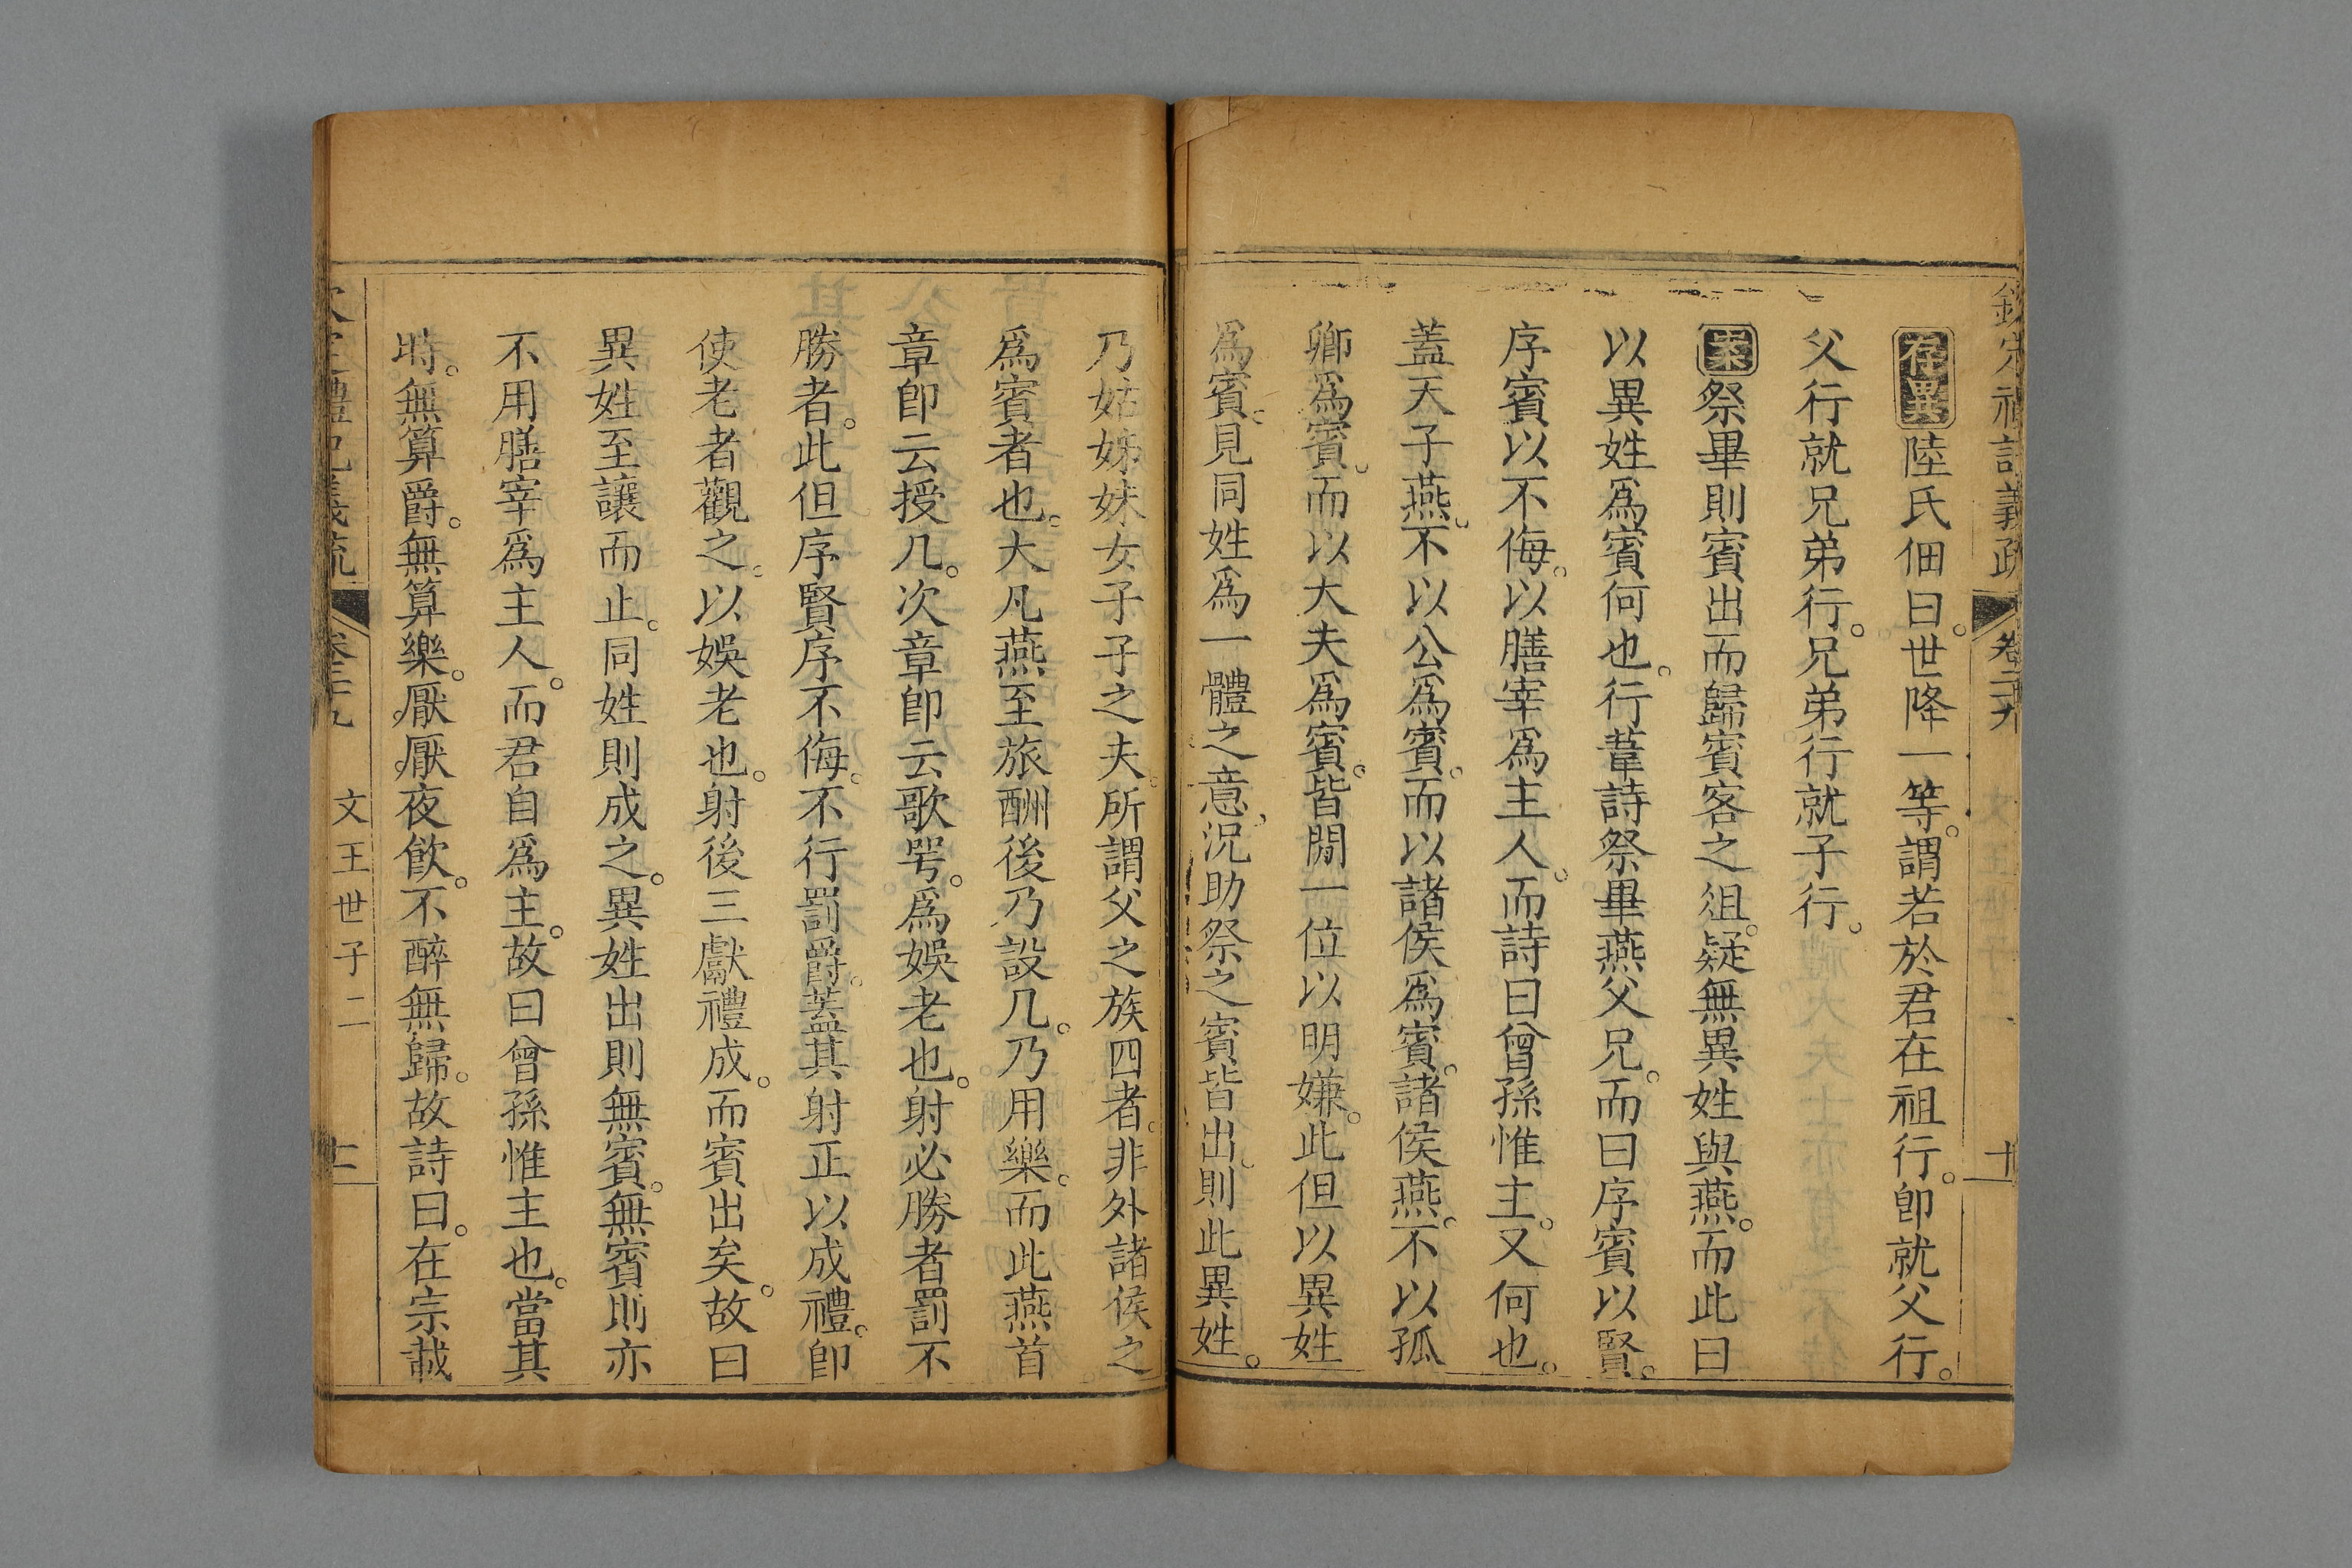 欽定禮記義疏 卷二十九 十
存異陸氏佃曰。世降一等。謂若於君在祖行。卽就父行。
父行就兄弟行。兄弟行就子行。
案祭畢則賓出而歸賓客之俎。疑無異姓與燕。而此曰
以異姓爲賓何也。行葦詩祭畢燕父兄。而曰序賓以賢。
序賓以不侮。以膳宰爲主人。而詩曰曾孫惟主。又何也。
蓋天子燕。不以公爲賓。而以諸侯爲賓。諸侯燕。不以孤
卿爲賓。而以大夫爲賓。皆閒一位以明嫌。此但以異姓
爲賓。見同姓爲一體之意。況助祭之賓皆出。則此異姓。
乃姑姊妹女子子之夫。所謂父之族四者。非外諸侯之
爲賓者也。大凡燕至旅酬後乃設几。乃用樂。而此燕首
章卽云授几。次章卽云歌咢。爲娛老也。射必勝者罰不
勝者。此但序賢序不侮。不行罰爵。葢其射正以成禮。卽
使老者觀之。以娛老也。射後三獻禮成。而賓出矣。故曰
異姓至讓而止。同姓則成之。異姓出則無賓。無賓則亦
不用膳宰爲主人。而君自爲主。故曰曾孫惟主也。當其
時。無算爵。無算樂。厭厭夜飲。不醉無歸。故詩曰。在宗載
禮記義疏 卷二十九 文王世子二